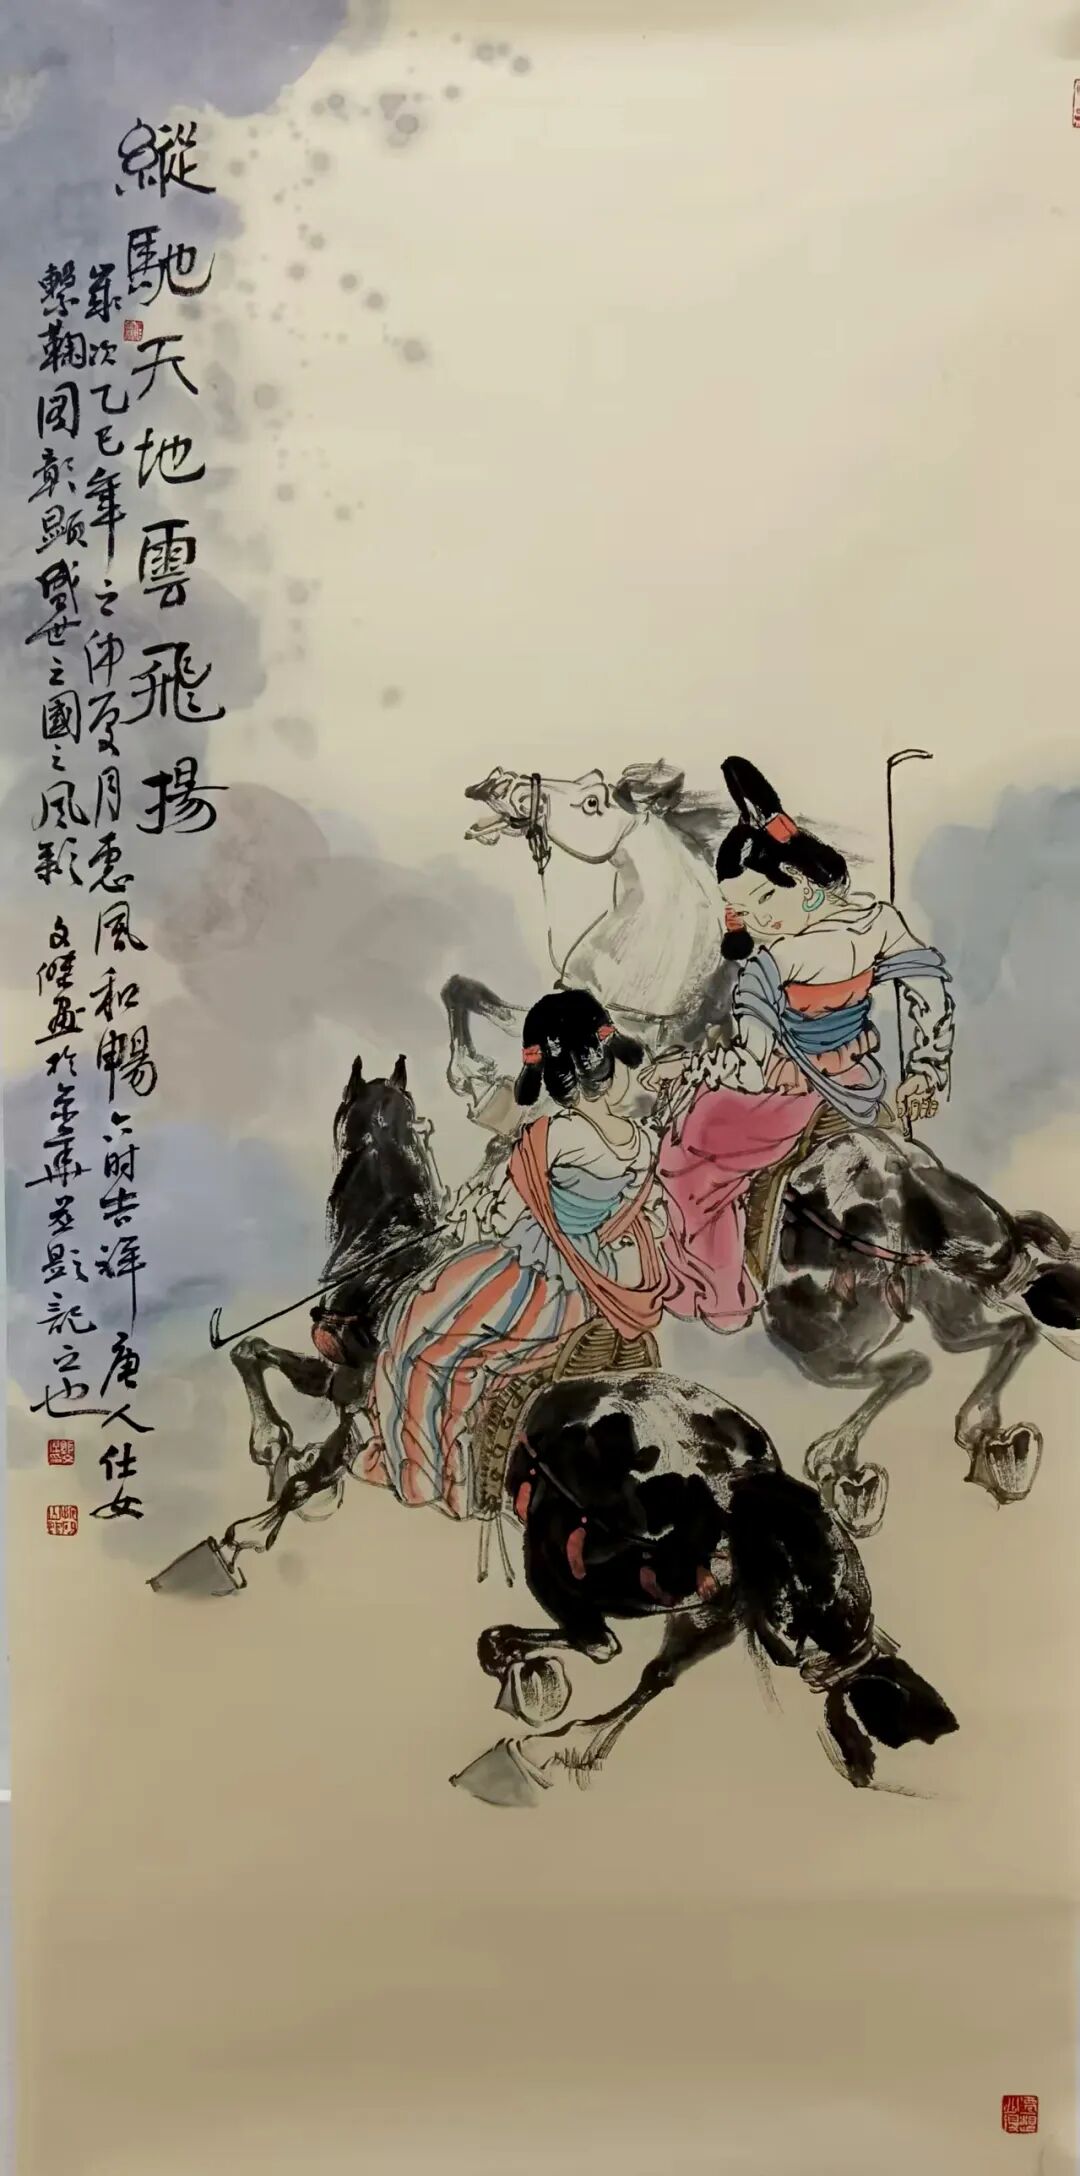 縱馳天地雲飛揚
歲次乙巳年之仲夏月惠風和暢六时吉祥唐人仕女
擊鞠图彰顯盛世之國之风彩 文傑畫於金華並題記之也